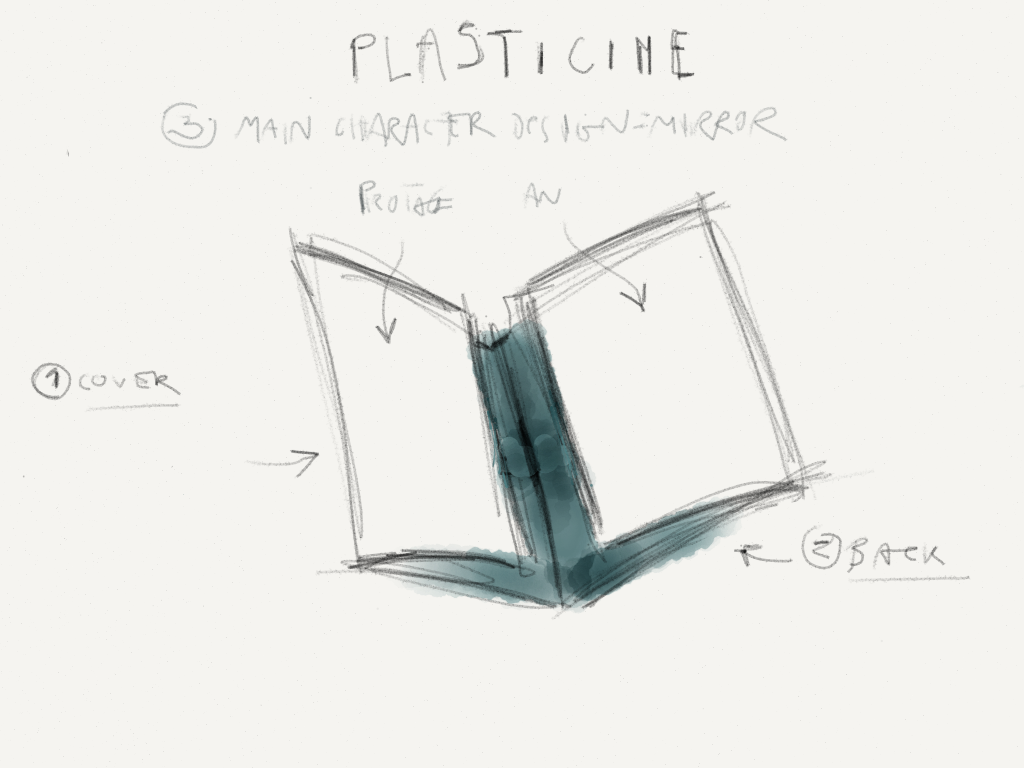 PLASTICINE
③ MAIN CHARACTER DESIGN-MIRROR
PROTAG AN
① COVER
② BACK